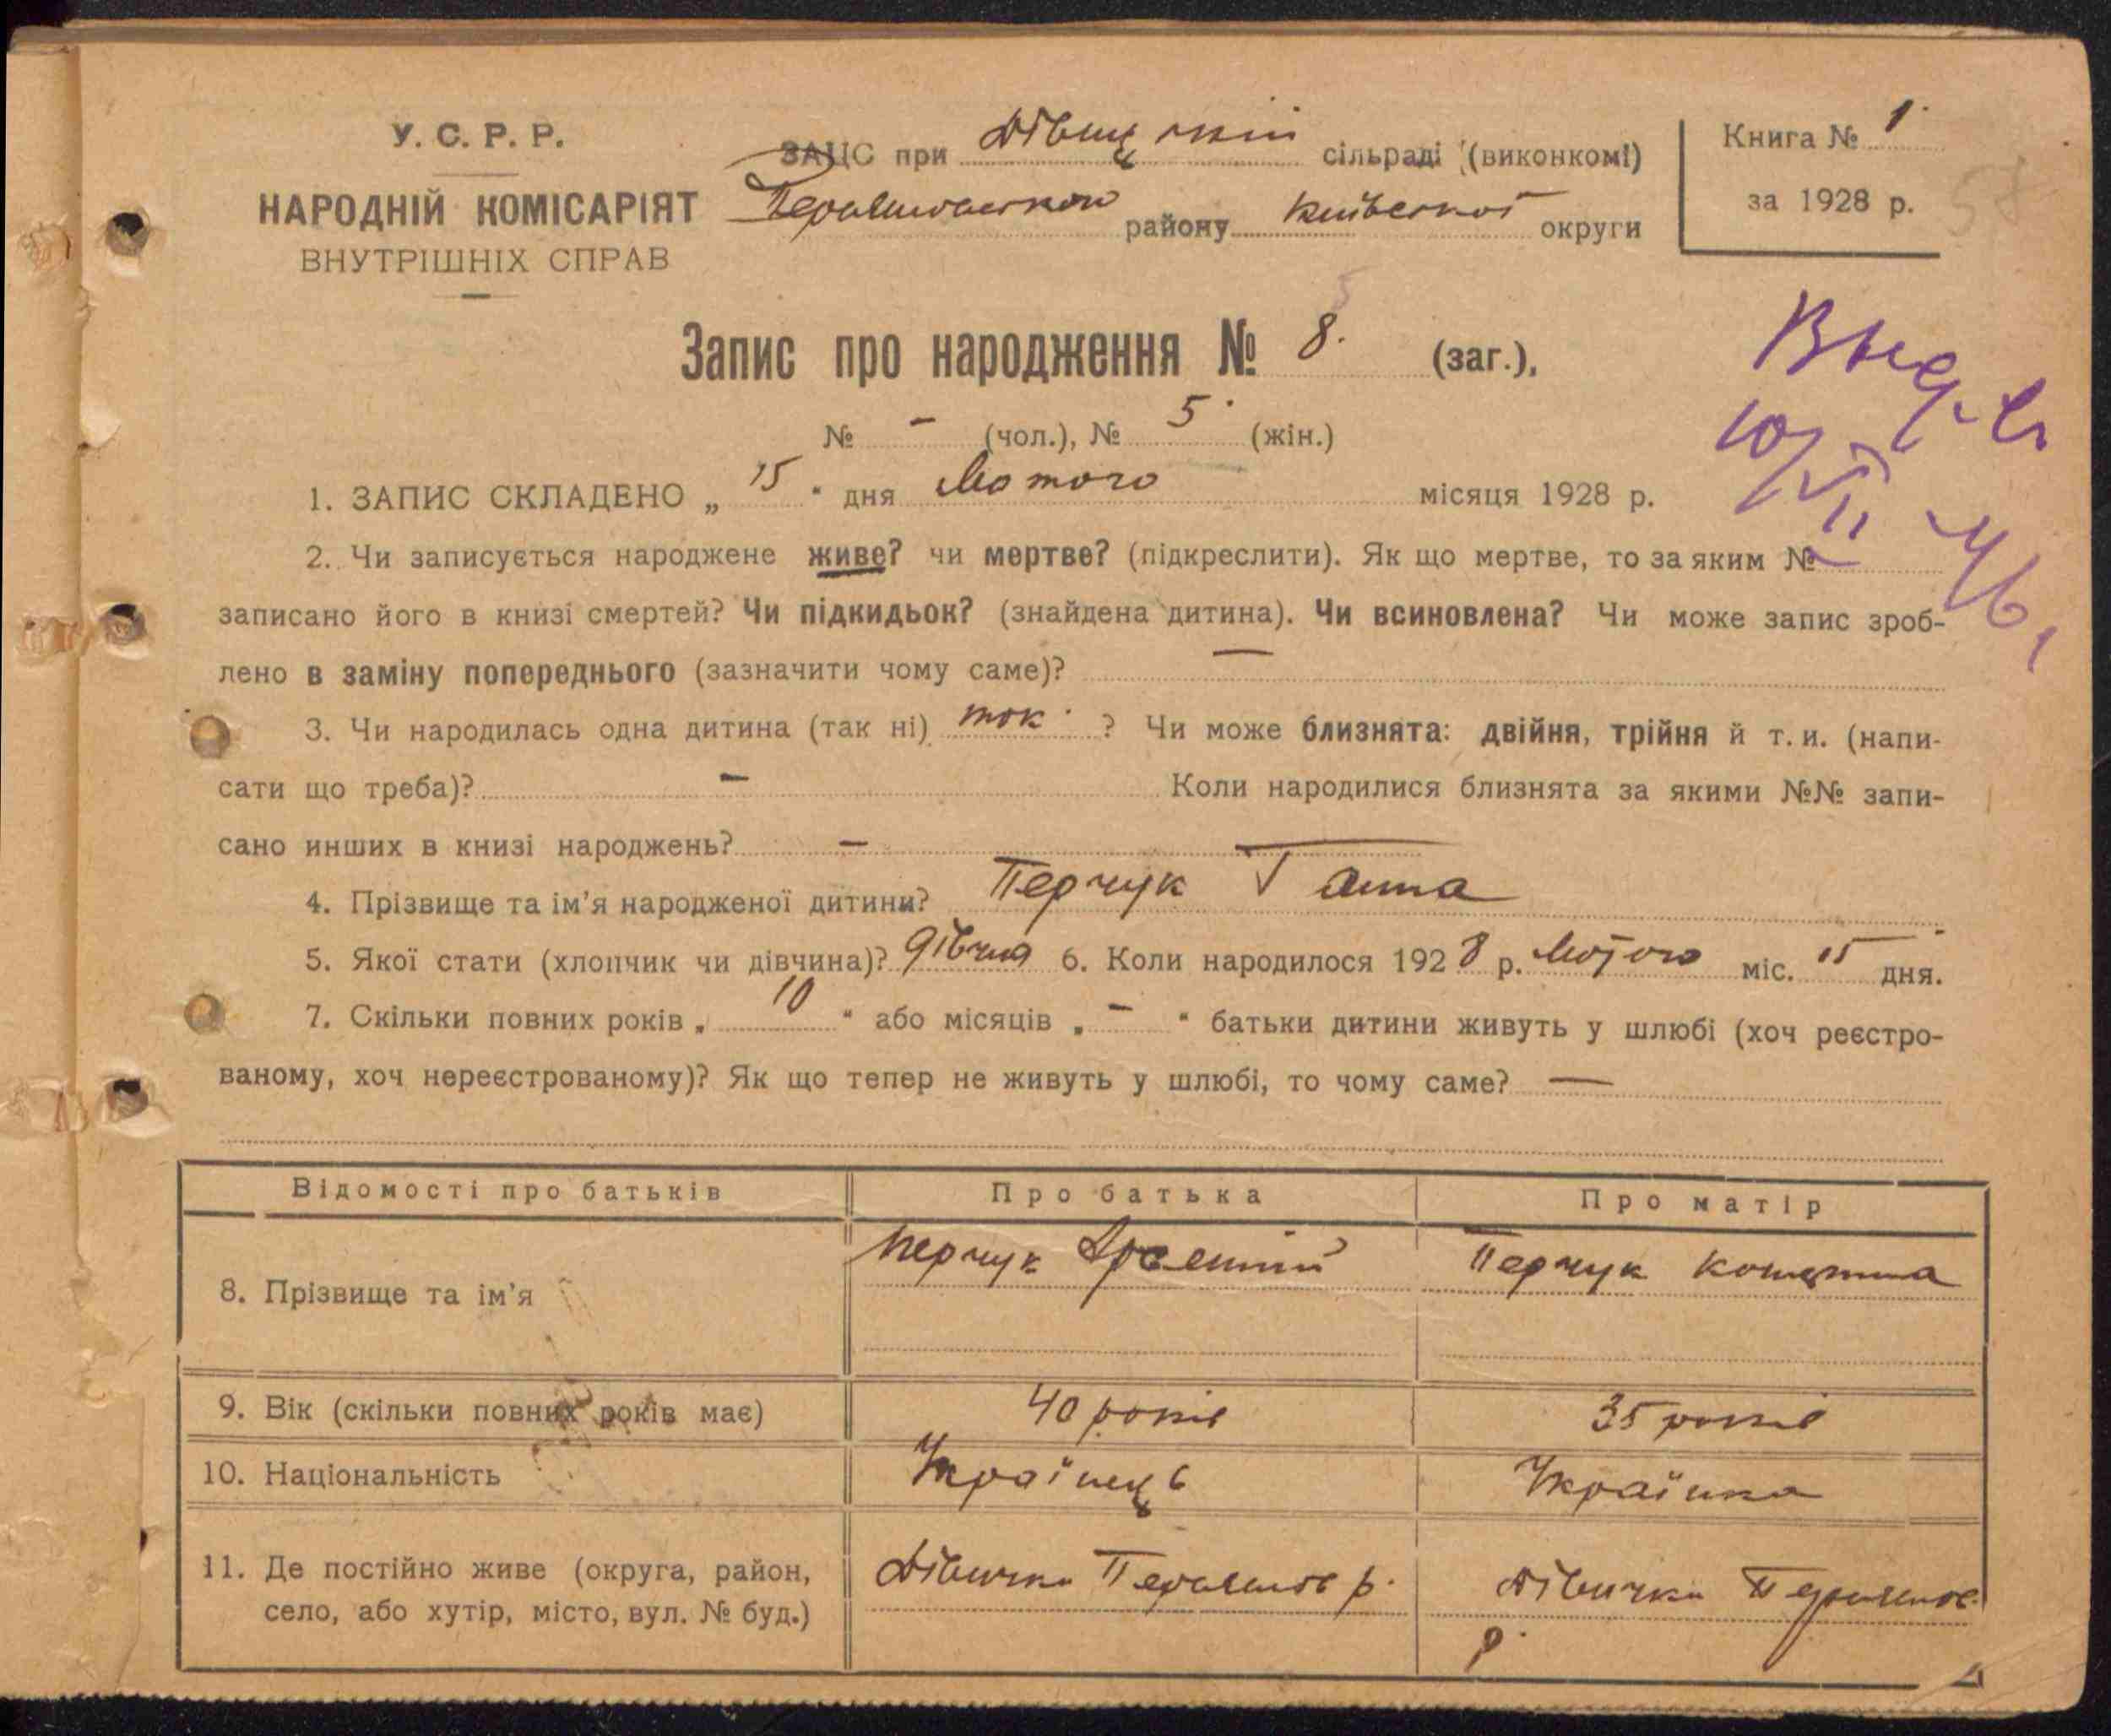 У. С. Р. Р.
НАРОДНІЙ КОМІСАРІЯТ
ВНУТРІШНІХ СПРАВ
ЗАЦС при Дівицькій сільраді (виконкомі)
району Київської округи
Книга № 1
за 1928 р.
Запис про народження № 8. (заг.),
№ – (чол.), № 5 (жін.)
1. ЗАПИС СКЛАДЕНО „ 15 " дня Лютого місяця 1928 р.
2. Чи записується народжене живе? чи мертве? (підкреслити). Як що мертве, то за яким №
записано його в книзі смертей? Чи підкидьок? (знайдена дитина). Чи всиновлена? Чи може запис зроб-
лено в заміну попереднього (зазначити чому саме)? —
3. Чи народилась одна дитина (так ні) так ? Чи може близнята: двійня, трійня й т. и. (напи-
сати що треба)? – Коли народилися близнята за якими №№ запи-
сано инших в книзі народжень? –
4. Прізвище та ім'я народженої дитини? Перчук Ганна
5. Якої стати (хлопчик чи дівчина)? дівчина 6. Коли народилося 1928 р. Лютого міс. 15 дня.
7. Скільки повних років „ 10 " або місяців „ – " батьки дитини живуть у шлюбі (хоч реєстро-
ваному, хоч нереєстрованому)? Як що тепер не живуть у шлюбі, то чому саме? —
Відомості про батьків Про батька Про матір
8. Прізвище та ім'я Перчук Арсентій Перчук
9. Вік (скільки повних років має) 40 років 35 років
10. Національність Українець Українка
11. Де постійно живе (округа, район, Дівички Переяслов р. Дівички Переяслов.
село, або хутір, місто, вул. № буд.) р.